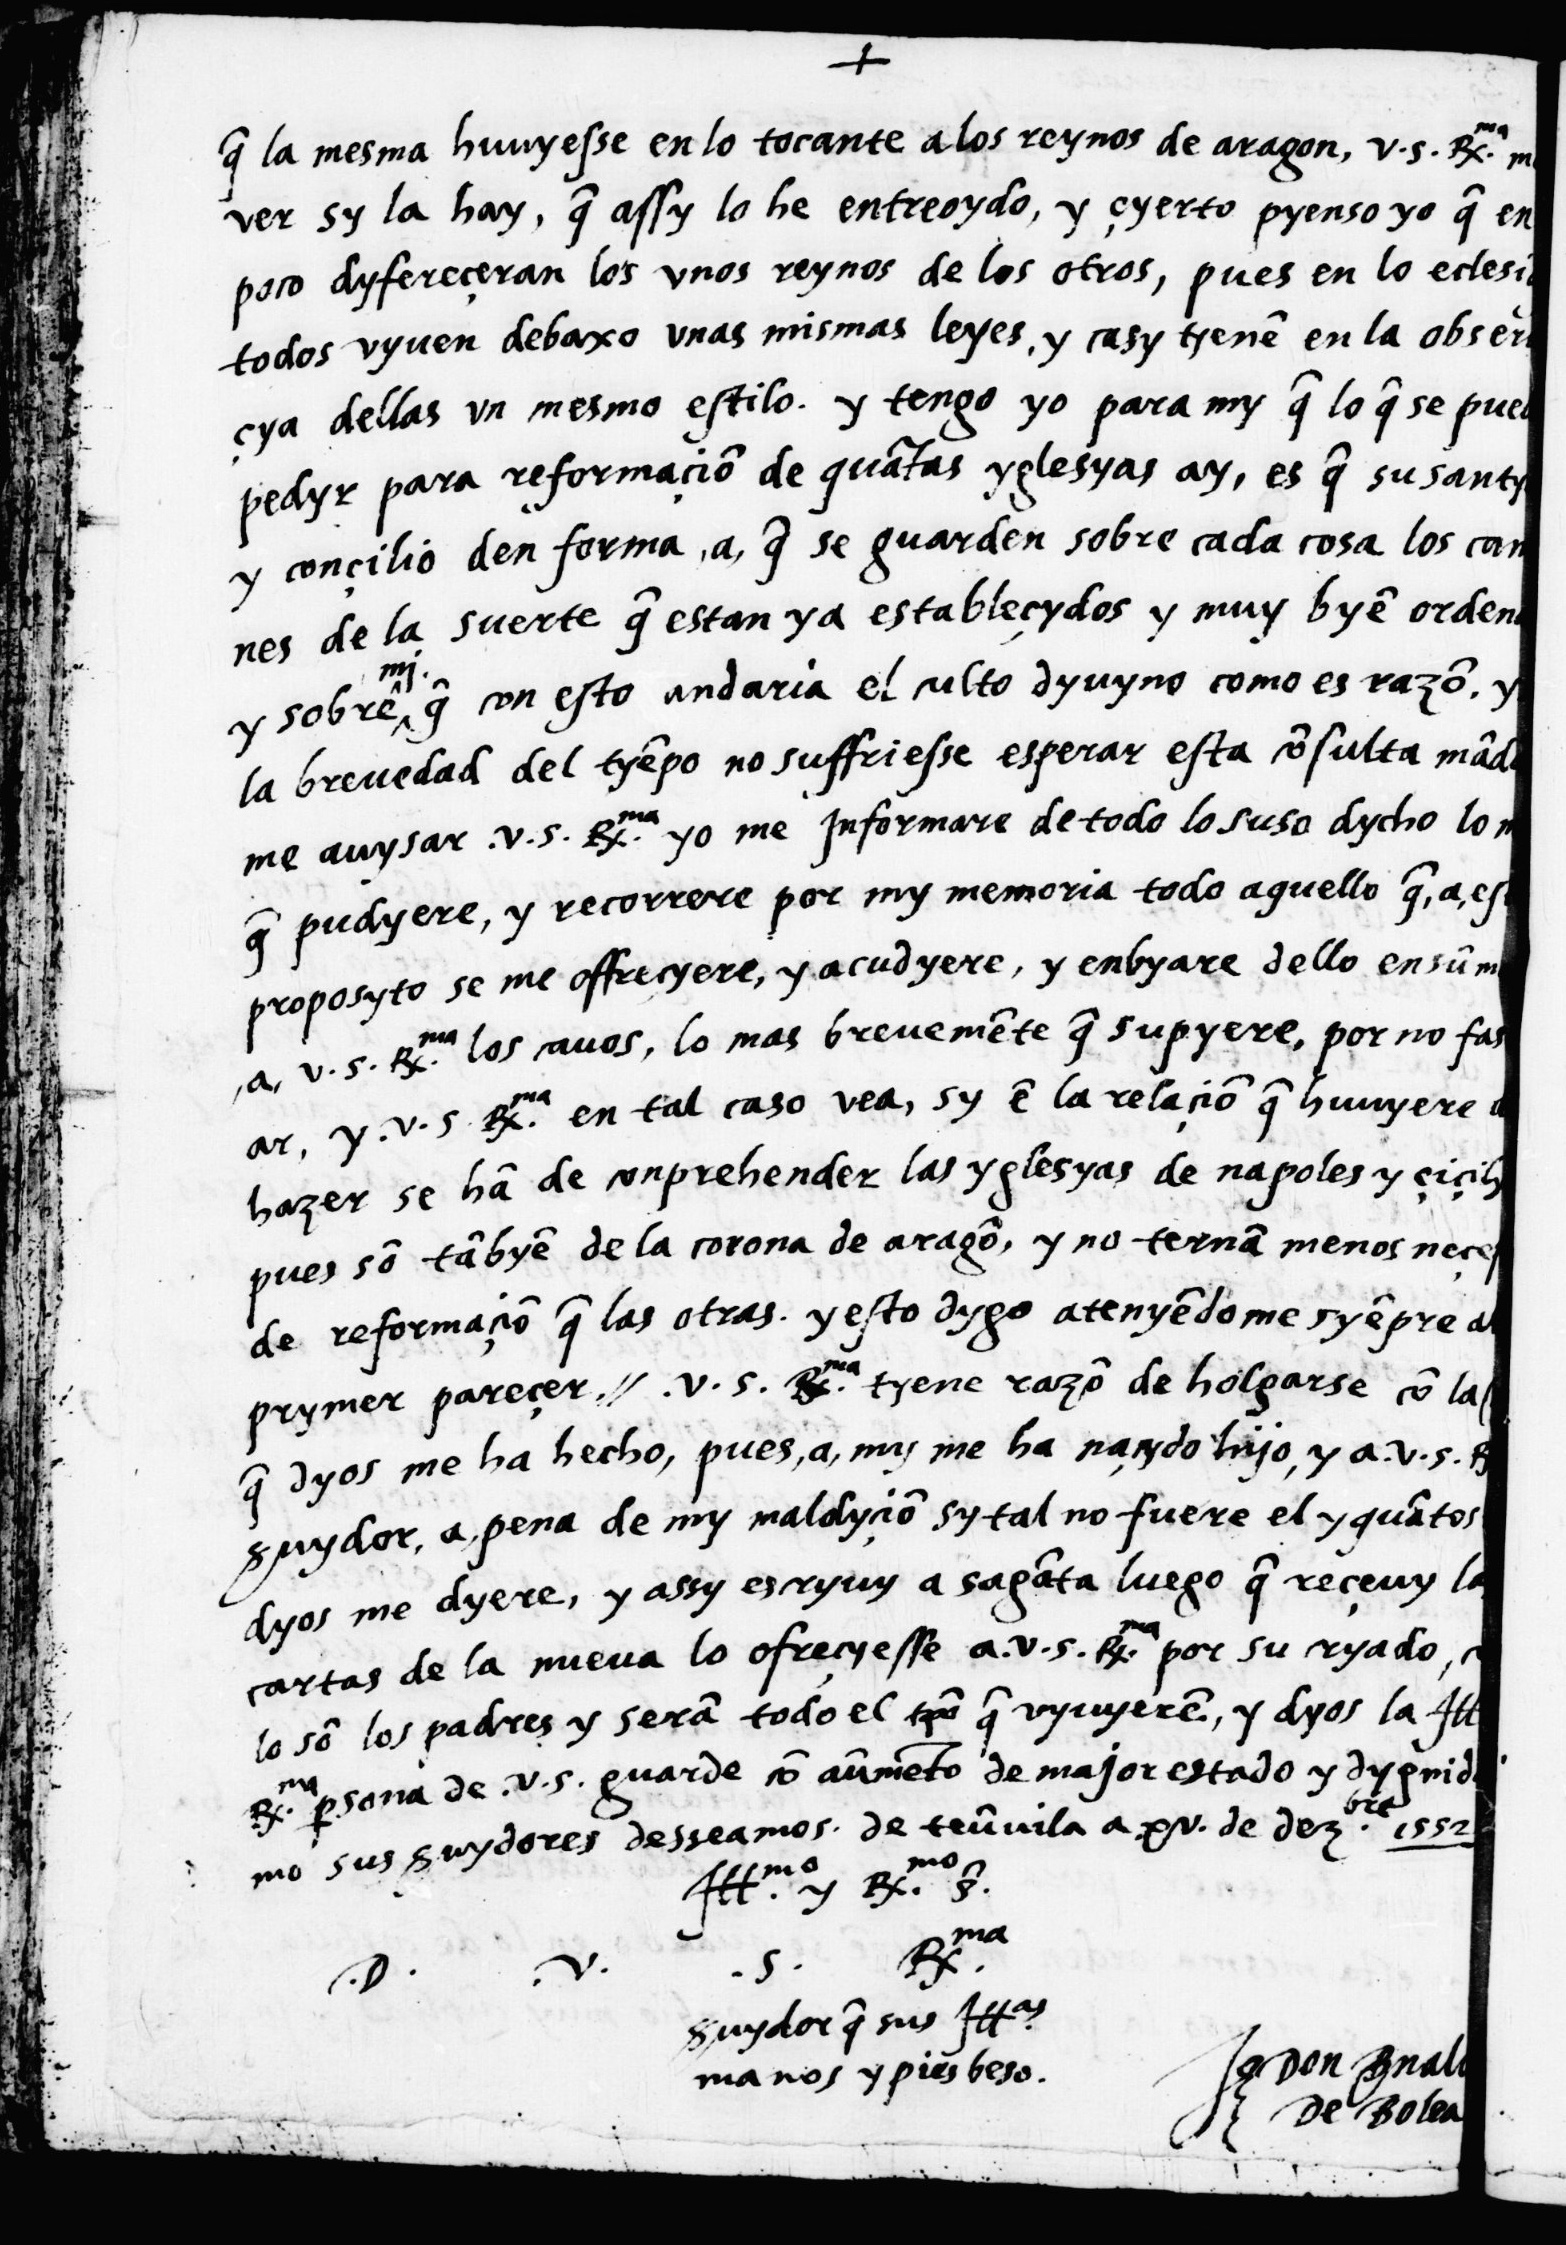 +
q̃ la mesma huuyesse en lo tocante a los reynos de aragon, v.s. R.ᵐᵃ m
ver sy la hay, q̃ assy lo he entreoydo, y çyerto pyenso yo q̃ en
poco dyfereçeran los vnos reynos de los otros, pues en lo eclesi
todos vyuen debaxo vnas mismas leyes, y casy tyenẽ en la obser
çya dellas vn mesmo estilo. y tengo yo para my q̃ lo q̃ se pue
pedyr para reformaçiõ de quãtas yglesyas ay, es q̃ su santy
y conçilio den forma ,a, q̃ se guarden sobre cada cosa los can
nes de la suerte q̃ estan ya estableçydos y muy byẽ orden
y sobrẽ mj. q̃ con esto andaria el culto dyuyno como es razõ. y
la breuedad del tyẽpo no suffriesse esperar esta cõsulta mãd
me auysar .v.s. R.ᵐᵃ yo me Jnformare de todo lo suso dycho lo m
q̃ pudyere, y recorrere por my memoria todo aquello q̃, a, es
proposyto se me offreçyere, y acudyere, y enbyare dello en sũm
,a, v.s. R.ᵐᵃ los cauos, lo mas breuemẽte q̃ supyere, por no fas
ar, y .v.s R.ᵐᵃ en tal caso vea, sy ẽ la relaçiõ q̃ huuyere
hazer se hã de conprehender las yglesyas de napoles y çiçily
pues sõ tãbyẽ de la corona de aragõ, y no ternã menos neçes
de reformaçiõ q̃ las otras. y esto dygo atenyẽdome syẽpre al
prymer pareçer. // .v.s. R.ᵐᵃ tyene razõ de holgarse cõ la
q̃ dyos me ha hecho, pues, a, my me ha naçydo hijo, y a .v.s. R
suydor, a, pena de my maldyçiõ sy tal no fuere el y quãtos
dyos me dyere, y assy escryuy a sagãta luego q̃ reçeuy la
cartas de la nueua lo ofreçyesse a .v.s. R.ᵐᵃ por su cryado, c
lo sõ los padres y serã todo el tpõ q̃ vyuyerẽ, y dyos la Jll
R.ᵐᵃ psona de .v.s. guarde cõ aũmẽto de major estado y dygnid
mo sus suydores desseamos. de teũuila a xv. de dez.ᵇʳᵉ 1552
Jll.ᵐᵒ y R.ᵐᵒ s̃.
.D. .V. .S. R.ᵐᵃ
suydor q̃ sus Jllᵃˢ
manos y pies beso.
Don Bnal
De Bolea